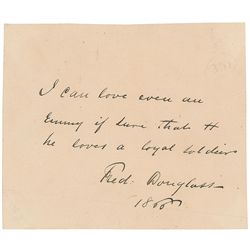 I can love even an
Enemy if sure that
he loves a loyal soldier
Fred. Douglass